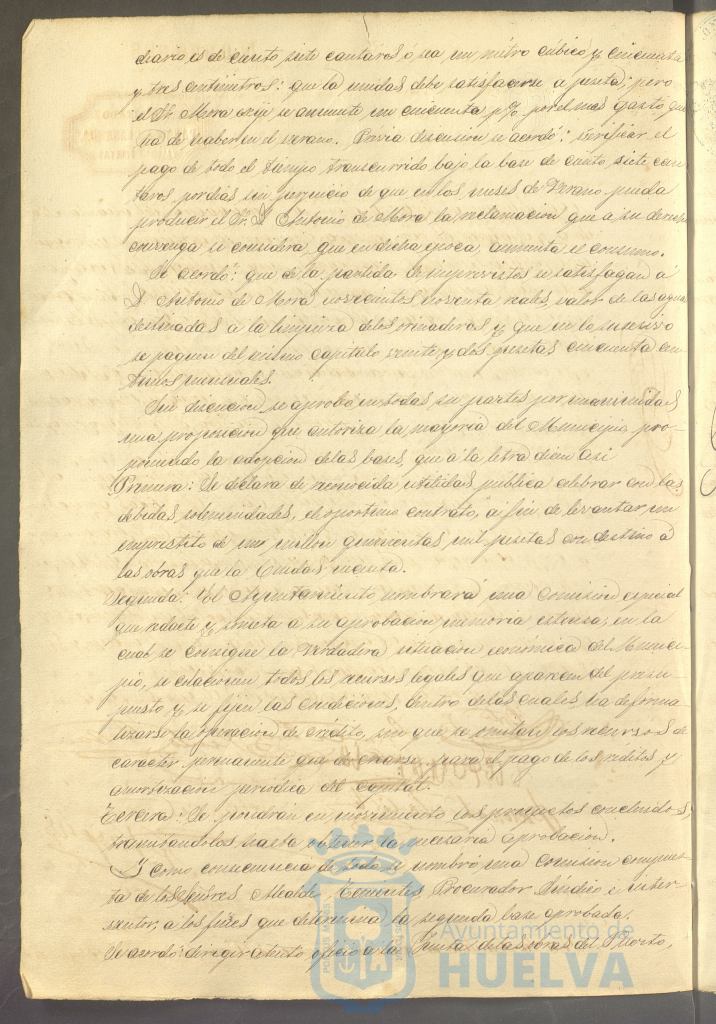 diario es de ciento siete cantaros ó sea un métro cúbico y cincuenta
y tres centimetros: que la unidad debe satisfacerse a peseta; pero
el Sr. Mora exije se aumente un cincuenta p% por el mas gasto que
ha de haber en el verano. Previa discusion se acordó: verificar el
pago de todo el tiempo transcurrido bajo la base de ciento siete can-
taros por dia, sin perjuicio de que en los meses de Verano pueda
producir el Sr. D. Antonio de Mora la reclamacion que á su derecho
convenga si considera que en dicha época aumenta el consumo.
Se acordó: que de la partida de imprevistos se satisfagan á
D. Antonio de Mora noventa reales, valor de las aguas
destinadas á la limpieza de los y que en lo sucesivo
se paguen del mismo capitulo veinte y dos pesetas cincuenta cen-
timos mensuales.
Sin discusion se aprobó en todas sus partes por unanimidad
una proposicion que autoriza la mayoria del Municipio pro-
poniendo la adopcion de las bases, que á la letra dicen asi
Primera: Se declara de reconocida utilidad pública celebrar con las
debidas solemnidades, el oportuno contrato, á fin de levantar un
emprestito de un millon quinientas mil pesetas con destino á
las obras que la Ciudad necesita.
Segunda: El Ayuntamiento nombrará una comision especial
que redacte y someta a su aprobacion memoria estensa, en la
cual se consigne la verdadera situacion económica del Munici-
pio, se relacionen todos los recursos legales que aparecen del presu-
puesto y se fijen las condiciones, dentro de las cuales ha de forma-
lizarse la operacion de crédito, sin que se omitan los recursos de
caracter permanente que para el pago de los réditos y
amortizacion periodica del capital.
Tercera: Se pondran en movimiento los proyectos concluidos,
tramitandolos hasta obtener la necesaria aprobacion.
Y como consecuencia de todo se nombró una Comision compues-
ta de los Señores Alcalde, Tenientes, Procurador Síndico é inter-
ventor, a los fines que determina la segunda base aprobada.
Se acordó: dirigir atento oficio á la Junta de las obras del Puerto,
Ayuntamiento de
HUELVA